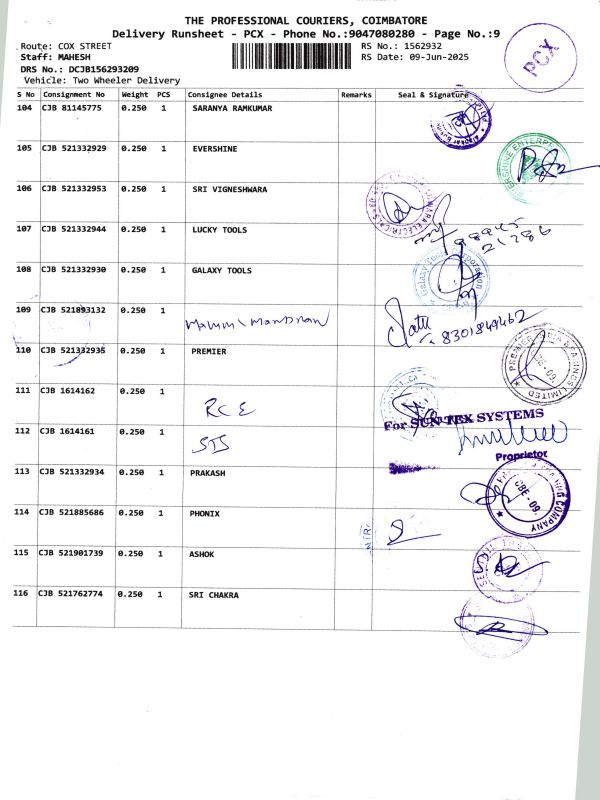 THE PROFESSIONAL COURIERS, COIMBATORE
Delivery Runsheet - PCX - Phone No.:9047080280 - Page No.:9
Route: COX STREET
RS No.: 1562932
Staff: MAHESH
RS Date: 09-Jun-2025
DRS No.: DCJB156293209
Vehicle: Two Wheeler Delivery
PCX
S No Consignment No Weight PCS Consignee Details Remarks Seal & Signature
104 CJB 81145775 0.250 1 SARANYA RAMKUMAR
105 CJB 521332929 0.250 1 EVERSHINE
106 CJB 521332953 0.250 1 SRI VIGNESHWARA
107 CJB 521332944 0.250 1 LUCKY TOOLS
108 CJB 521332930 0.250 1 GALAXY TOOLS
Galaxy Tools Corporation
109 CJB 521893132 0.250 1
8301849462
110 CJB 521332935 0.250 1 PREMIER
PREMIER BEARINGS LIMITED
CBE - 09.
111 CJB 1614162 0.250 1 RCE
For SUN-TEX SYSTEMS
112 CJB 1614161 0.250 1 STS
Proprietor
113 CJB 521332934 0.250 1 PRAKASH
BEARING COMPANY
CBE - 09.
114 CJB 521885686 0.250 1 PHONIX
115 CJB 521901739 0.250 1 ASHOK
116 CJB 521762774 0.250 1 SRI CHAKRA